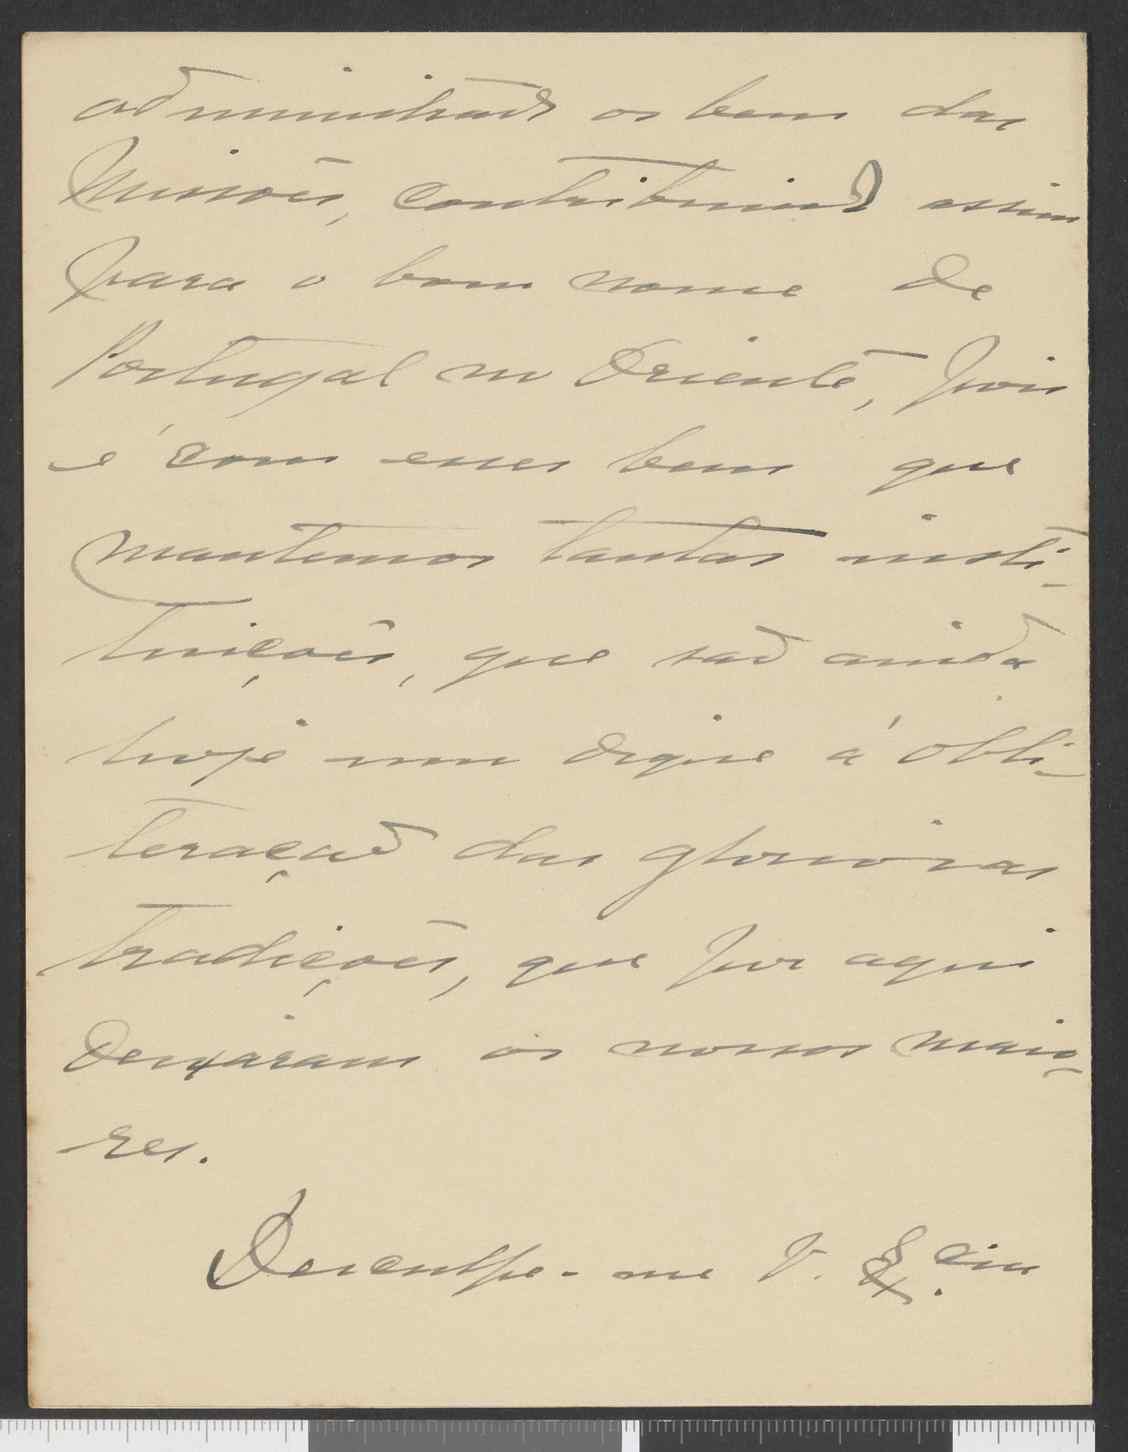 administrado os bens das
Missões, contribuindo assim
para o bom nome de
Portugal no Oriente, pois
é com esses bens que
mantemos tantas insti-
tuições, que são ainda
hoje um dique á obli-
teração das gloriosas
tradições, que por aqui
deixaram os nossos maio-
res.
Desculpe-me V. Ex.cia